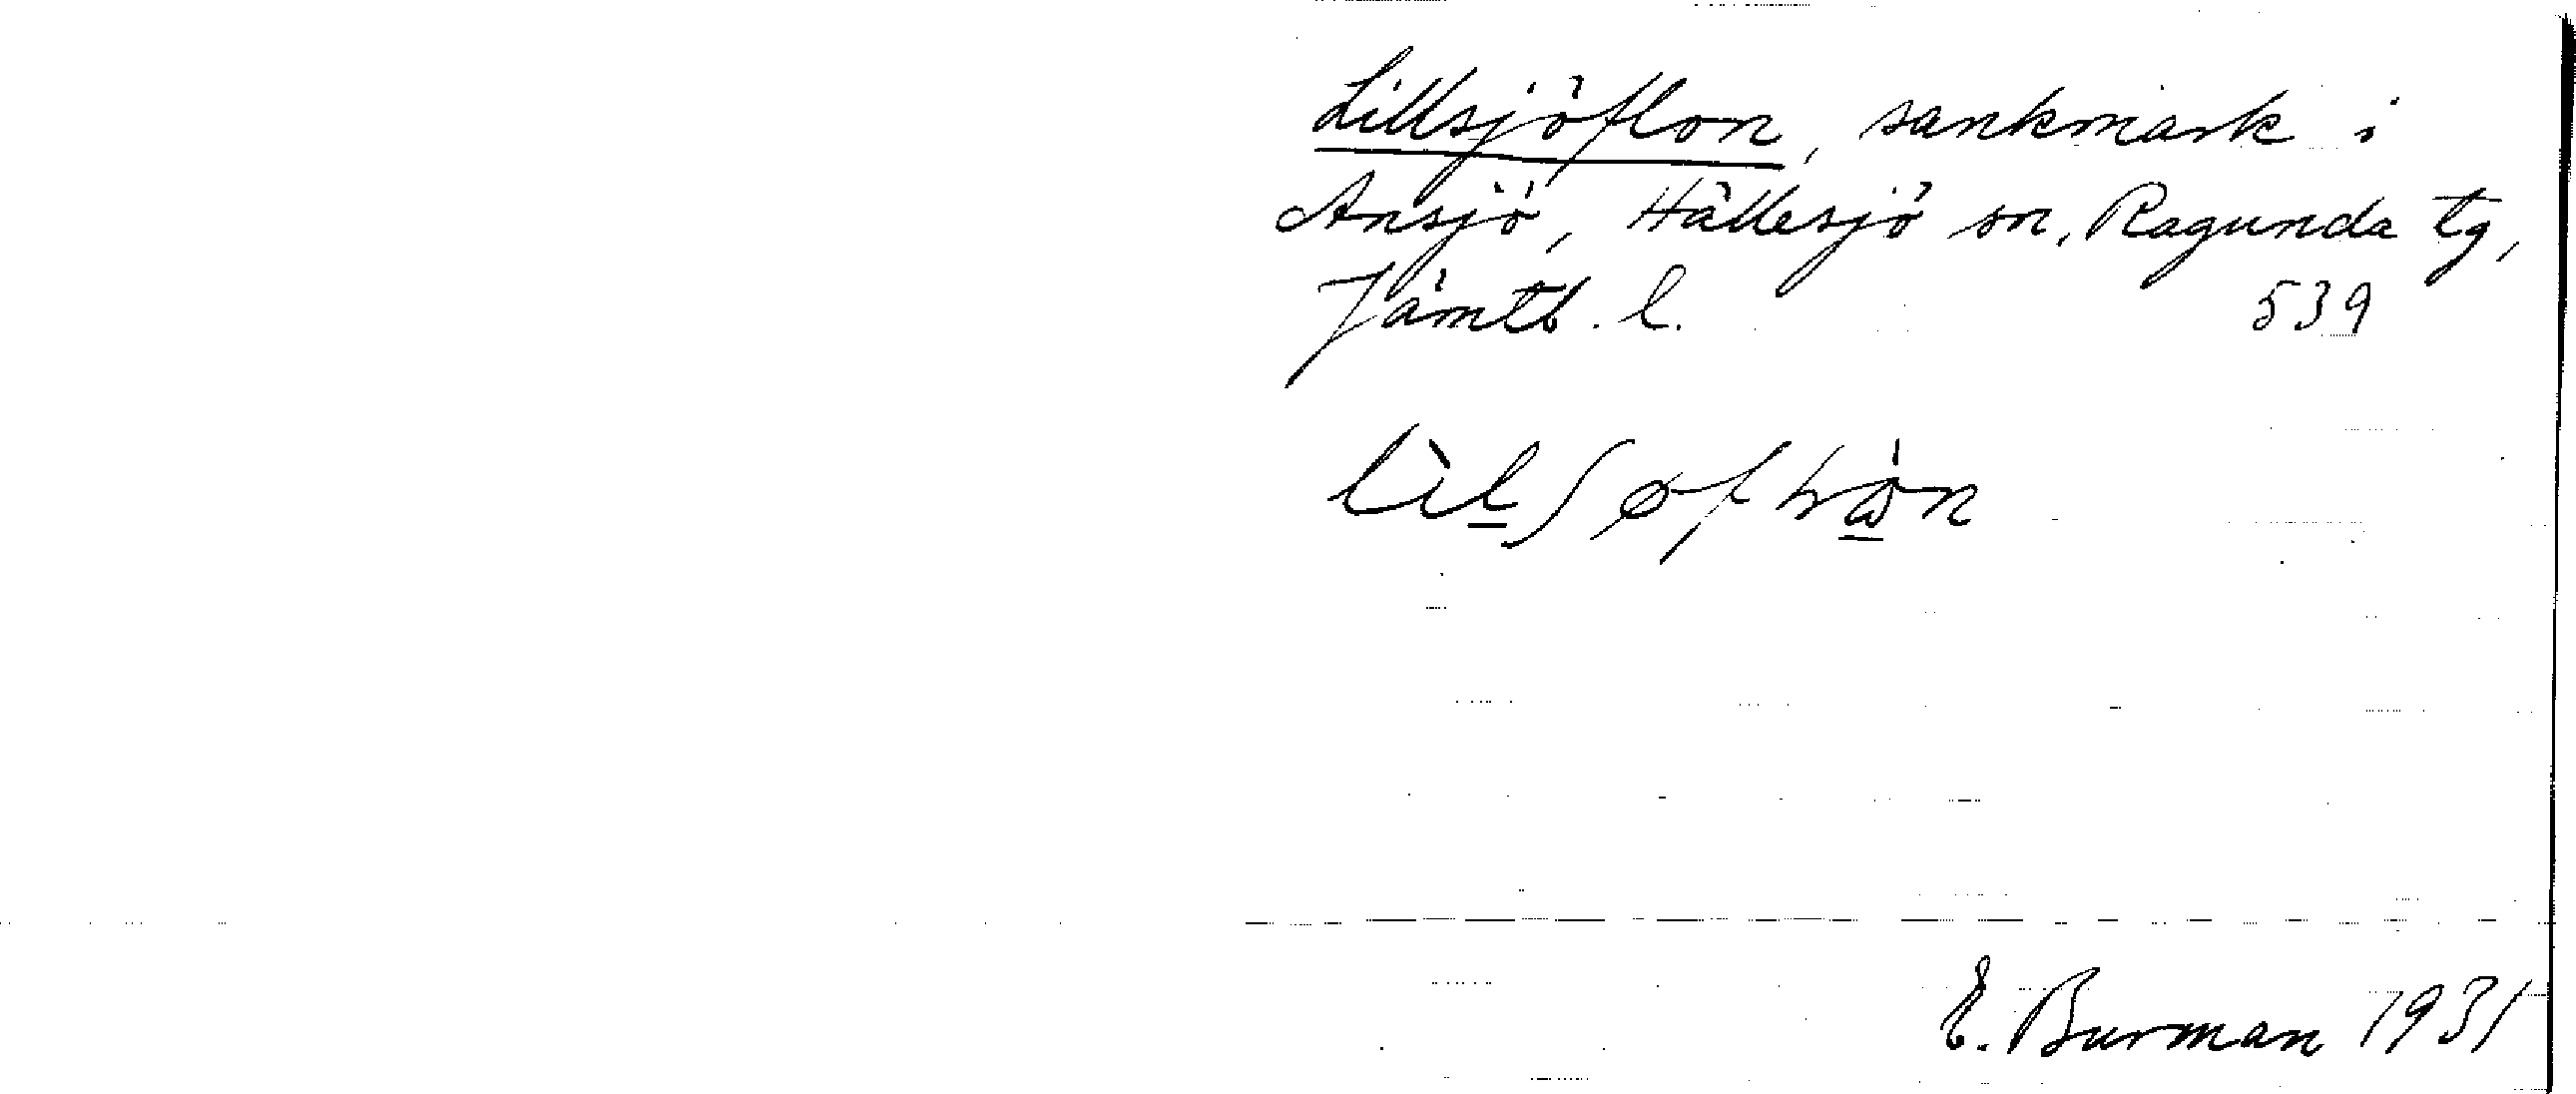 Lillsjöflon, sankmark i
Ansjö, Hällesjö sn, Ragunda tg,
Jämtl. l. 539
E. Burman 1931